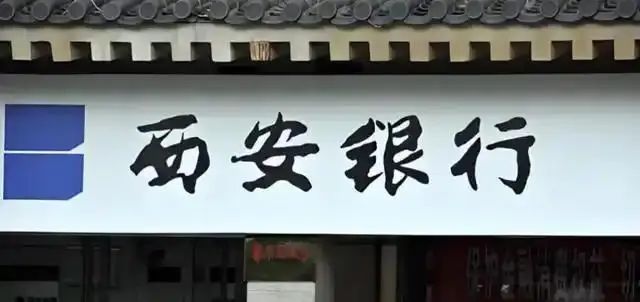 西安银行